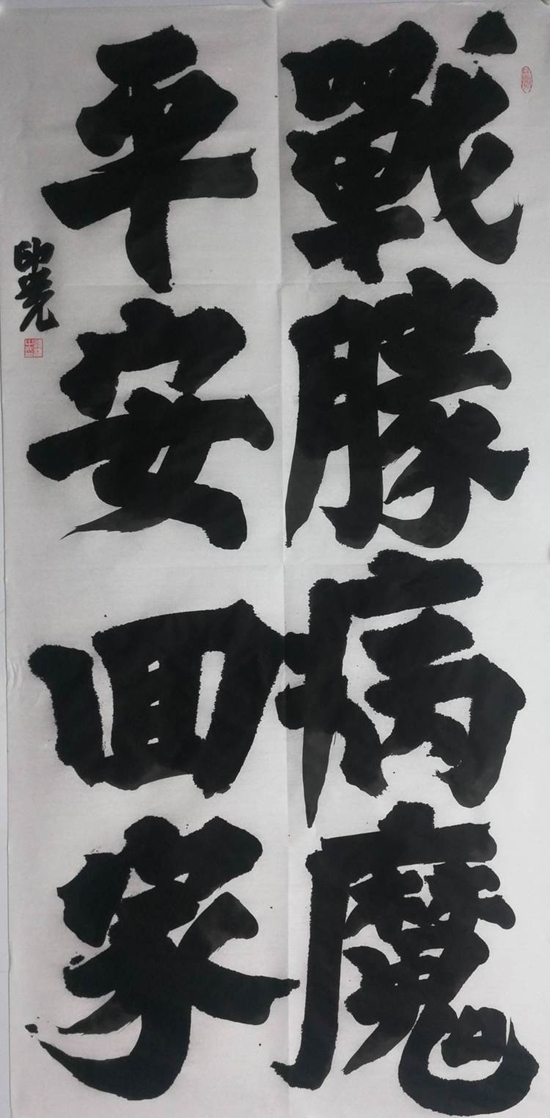 戰勝病魔
平安回家